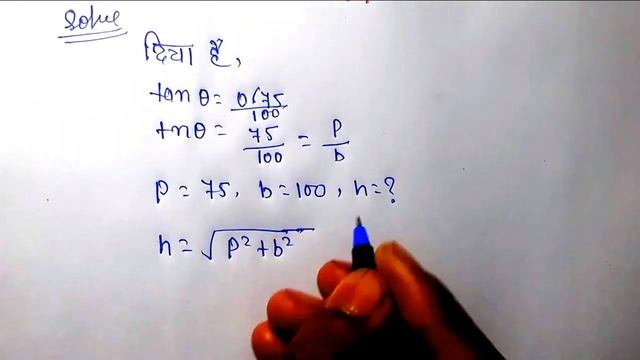 Solve
दिया है,
tanθ = 0.75/100
tnθ = 75/100 = P/b
P = 75, b = 100, h = ?
h = √P²+b²